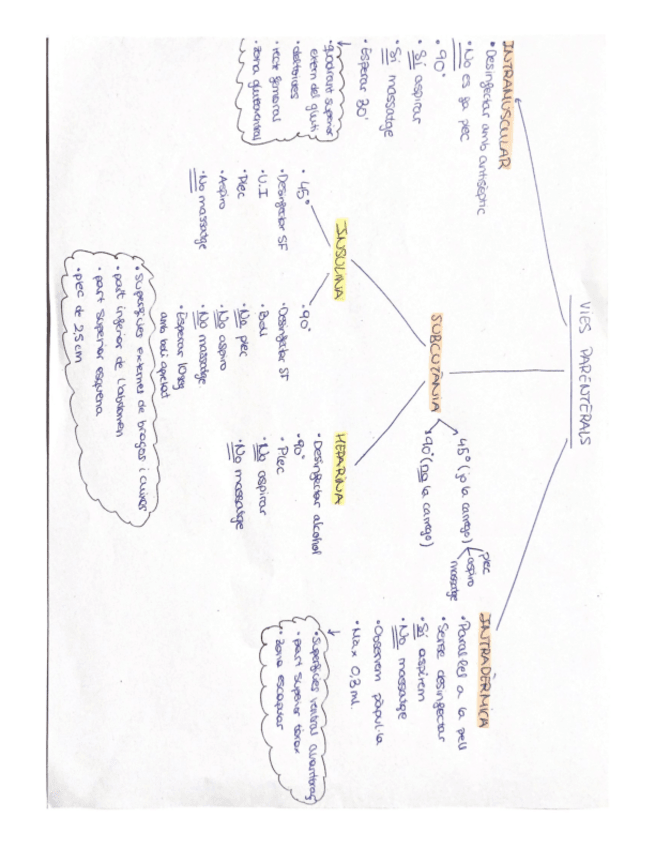 VIES PARENTERALS
INTRAMUSCULAR
• Desinfectar amb antisèptic
• No es fa plec
• 90°
• Sí aspirar
• Sí massatge
• Esperar 30'
• quadrant superior
extern del gluti
• deltoides
• recte femoral
• zona gluteoventral
SUBCUTÀNIA
45° (jo la carrego)
plec
aspiro
massatge
90° (no la carrego)
INSULINA
• 45°
• Desinfectar SF
• U.I
• Plec
• Aspiro
• No massatge
• 90°
• Desinfectar SF
• Boli
• No plec
• No aspiro
• No massatge
• Esperar 10seg
amb boli apretat
HEPARINA
• Desinfectar alcohol
• 90°
• Plec
• No aspirar
• No massatge
• Superfícies externes de braços i cuixes
• part inferior de l'abdomen
• part superior esquena
• plec de 2,5cm
INTRADÈRMICA
• Paral·lel a la pell
• Sense desinfectar
• Sí aspirem
• No massatge
• Observem pàpul·la
• Màx 0,3 ml.
• Superfícies ventral avantbraç
• part superior tòrax
• zona escapular